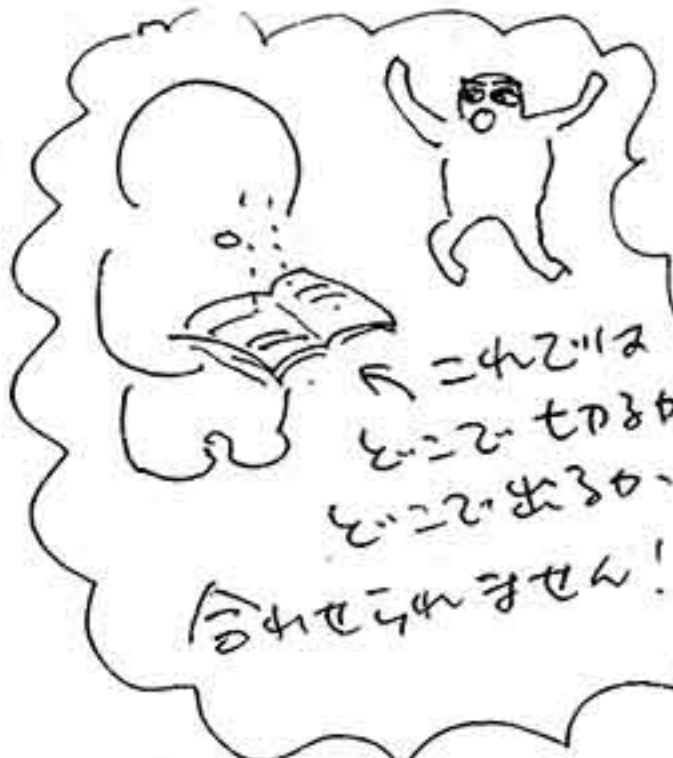 これでは
どこで切るか
どこで出るか、
合わせられません!